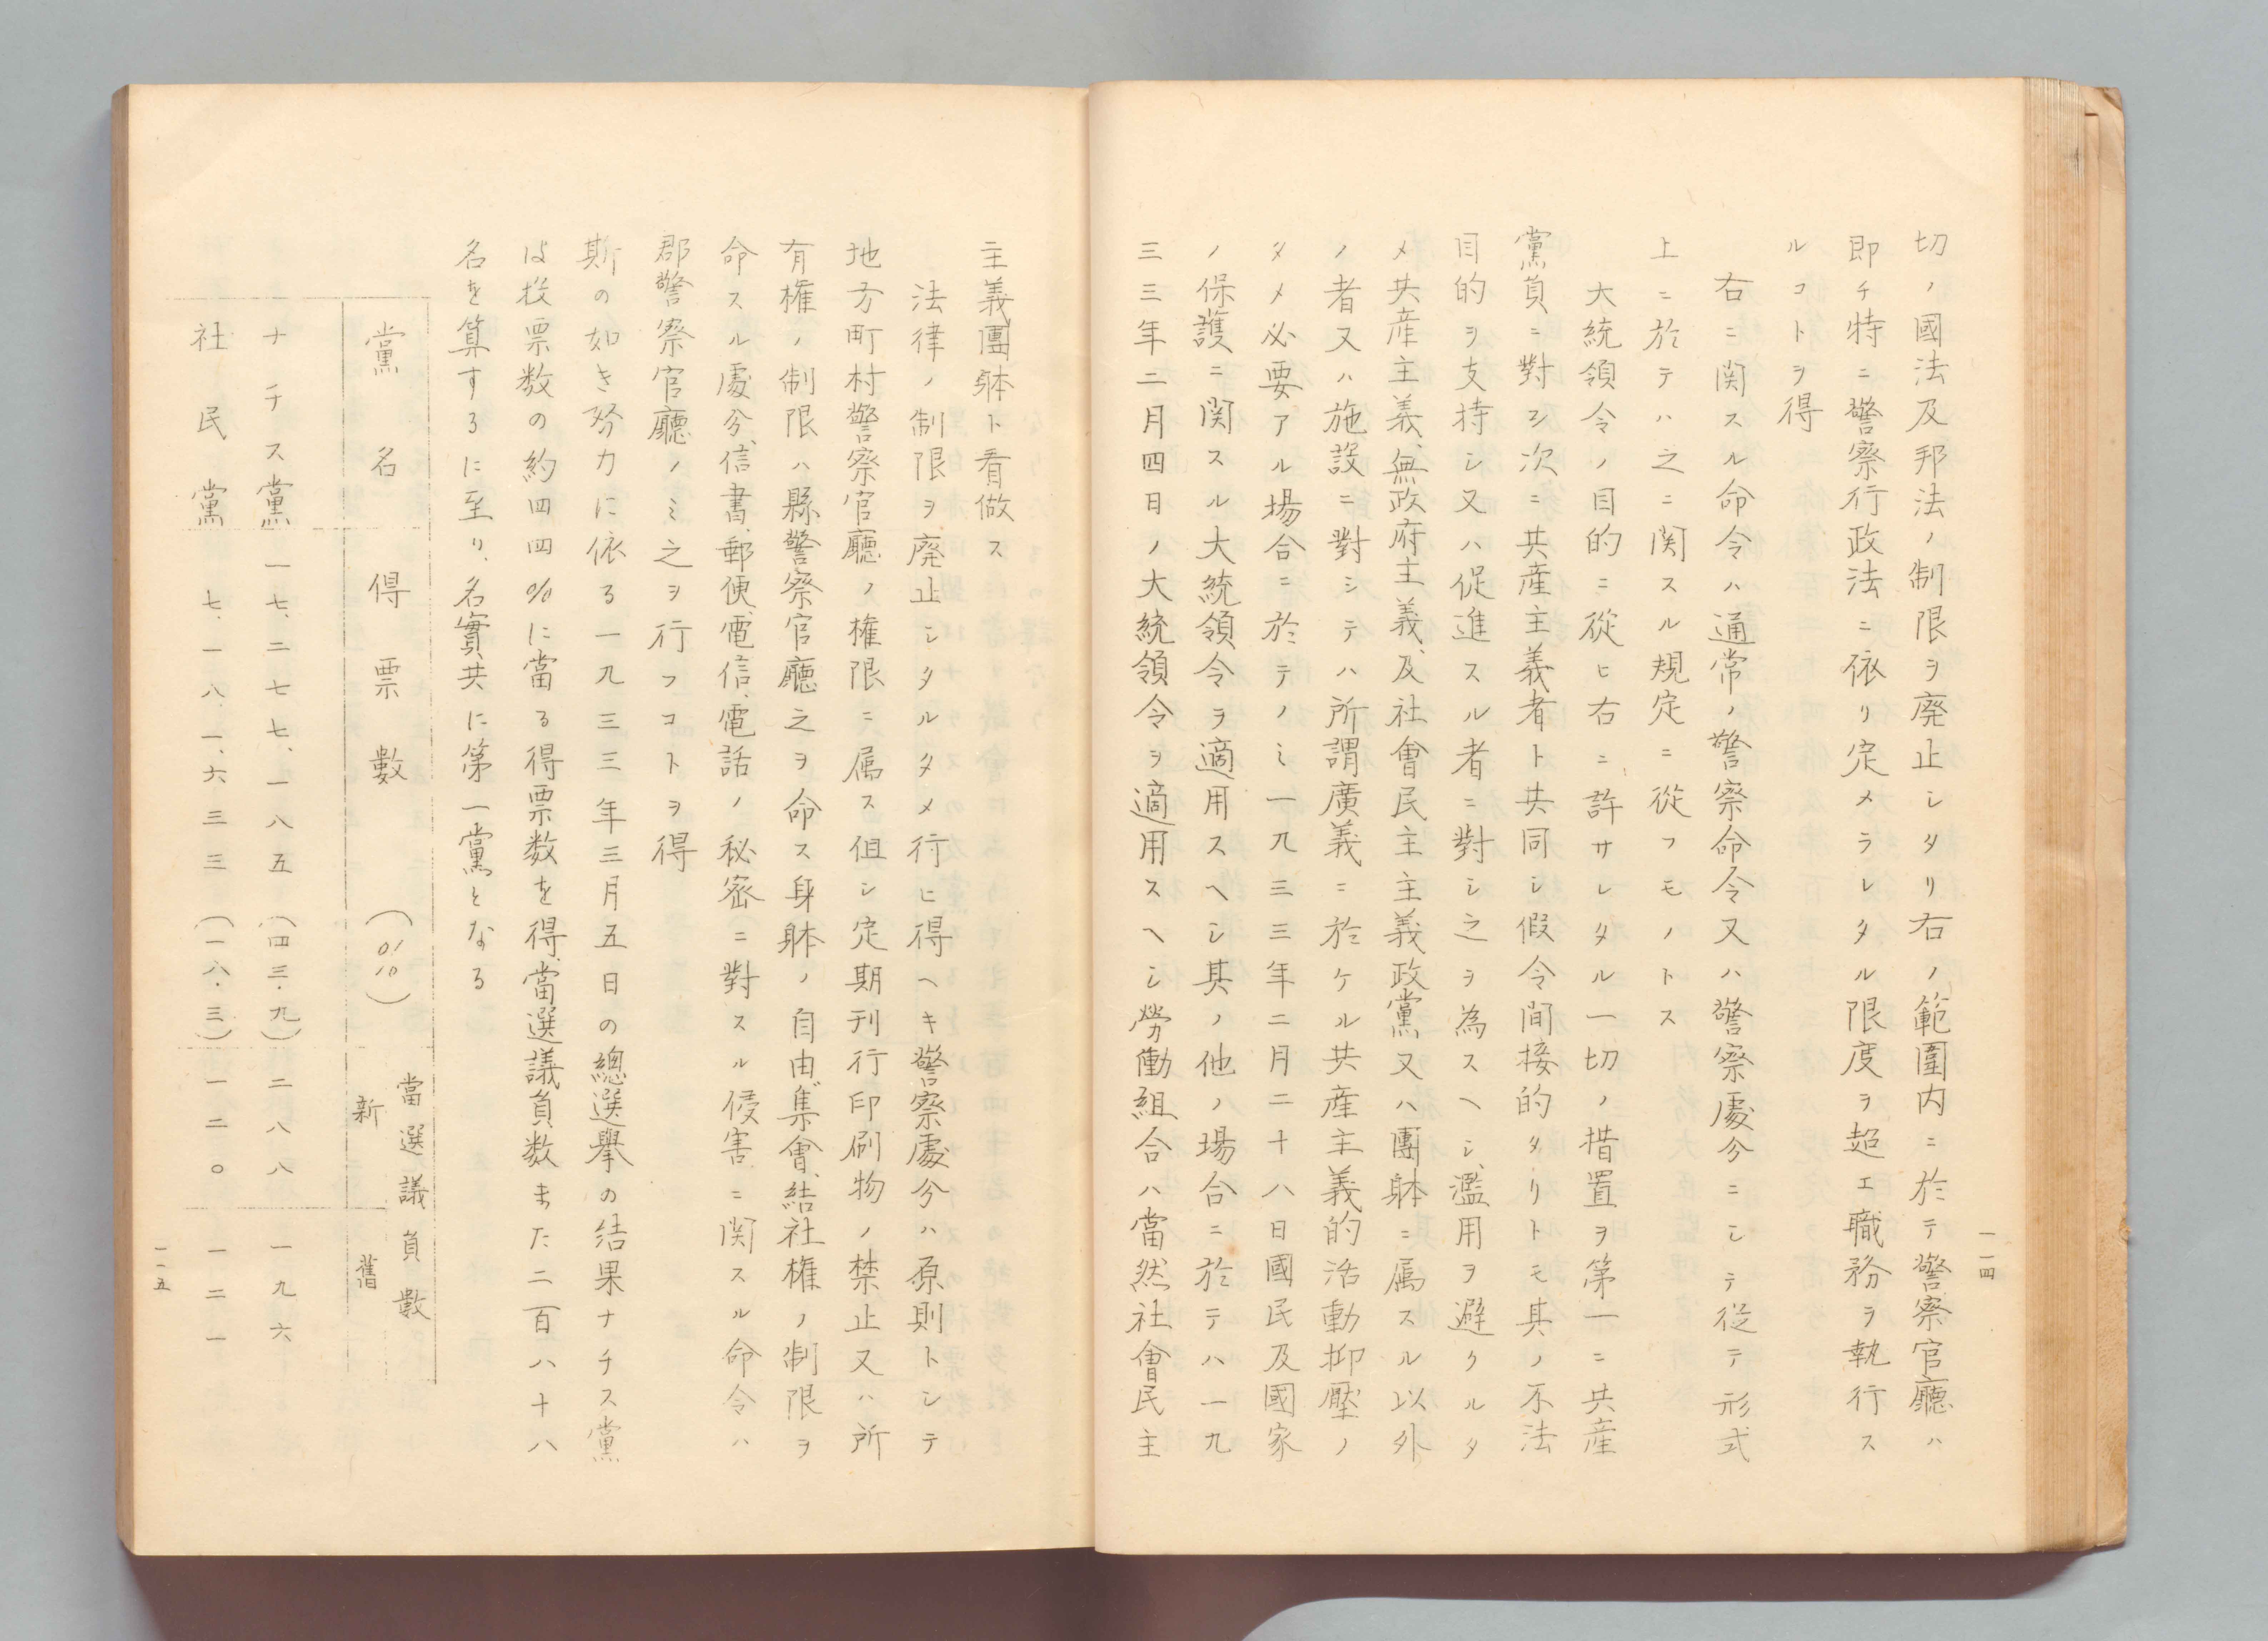 一一四
切ノ國法及邦法ノ制限ヲ廃止シタリ右ノ範圍内ニ於テ警察官廳ハ
即チ特ニ警察行政法ニ依リ定メラレタル限度ヲ超エ職務ヲ執行ス
ルコトヲ得
右ニ関スル命令ハ通常ノ警察命令又ハ警察處分ニシテ従テ形式
上ニ於テハ之ニ関スル規定ニ從フモノトス
大統領令ノ目的ニ從ヒ右ニ許サレタル一切ノ措置ヲ第一ニ共産
黨員ニ對シ次ニ共産主義者ト共同シ假令间接的タリトモ其ノ不法
目的ヲ支持シ又ハ促進スル者ニ對シ之ヲ為スヘシ、濫用ヲ避クルタ
メ共産主義、無政府主義、及社會民主主義政黨又ハ團躰ニ属スル以外
ノ者又ハ施設ニ對シテハ所謂廣義ニ於ケル共産主義的活動抑壓ノ
タメ必要アル場合ニ於テノミ一九三三年二月二十八日國民及國家
ノ保護ニ関スル大統領令ヲ適用スヘシ其ノ他ノ場合ニ於テハ一九
三三年二月四日ノ大統領令ヲ適用スヘシ勞働組合ハ當然社會民主
主義團躰ト看做ス
法律ノ制限ヲ廃止シタルタメ行ヒ得ヘキ警察處分ハ原則トシテ
地方町村警察官廳ノ權限ニ属ス但シ定期刊行印刷物ノ禁止又ハ所
有權ノ制限ハ縣警察官廳之ヲ命ス身躰ノ自由、集會、結社權ノ制限ヲ
命スル處分、信書、郵便、電信、電話ノ秘密ニ對スル侵害ニ関スル命令ハ
郡警察官廳ノミ之ヲ行フコトヲ得
斯の如き努力に依る一九三三年三月五日の總選擧の結果ナチス黨
は投票数の約四四％に當る得票数を得、當選議員数また二百八十八
名を算するに至り、名實共に第一黨となる
黨名 得票數（％） 當選議員數
新 舊
ナチス黨 一七、二七七、一八五（四三・九） 二八八 一九六
社民黨 七、一八一、六三三（一八・三） 一二〇 一二一
一一五